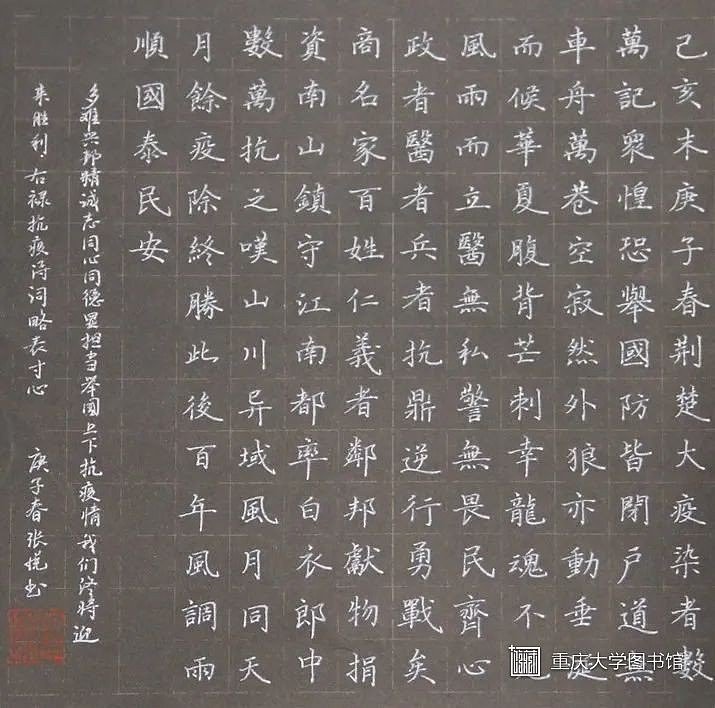 己亥末庚子春荆楚大疫染者數
萬記衆惶恐舉國防皆閉戶道無
車舟萬巷空寂然外狼亦動垂涎
而候華夏腹背芒刺幸龍魂不
風雨而立醫無私警無畏民齊心
政者醫者兵者抗鼎逆行勇戰矣
商名家百姓仁義者鄰邦獻物捐
資南山鎮守江南都率白衣郎中
數萬抗之嘆山川异域風月同天
月餘疫除終勝此後百年風調雨
順國泰民安
多难兴邦精诚志同心同德显担当举国上下抗疫情我们终将迎
来胜利.右禄抗疫诗词略表寸心 庚子春张悦书
重庆大学图书馆